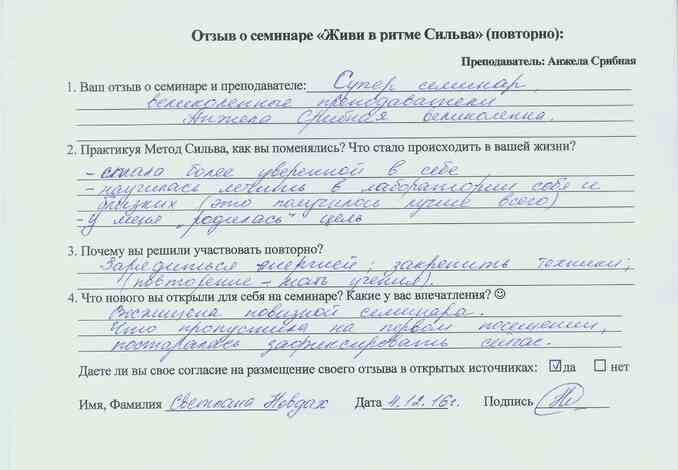 Отзыв о семинаре «Живи в ритме Сильва» (повторно):
Преподаватель: Анжела Срибная
1. Ваш отзыв о семинаре и преподавателе: Супер семинар,
великолепные преподаватели
Анжела Срибная великолепна.
2. Практикуя Метод Сильва, как вы поменялись? Что стало происходить в вашей жизни?
- стала более уверенной в себе
- научилась лечить в лаборатории себя и
близких (это получилось лучше всего)
- у меня „родилась“ цель
3. Почему вы решили участвовать повторно?
Зарядиться энергией; закрепить техники;
(повторение – мать учения).
4. Что нового вы открыли для себя на семинаре? Какие у вас впечатления? ☺
Восхищена новизной семинара.
Что пропустила на первом посещении,
постаралась зафиксировать сейчас.
Даете ли вы свое согласие на размещение своего отзыва в открытых источниках: ☑ да ☐ нет
Имя, Фамилия Светлана Новдах Дата 4.12.16г. Подпись